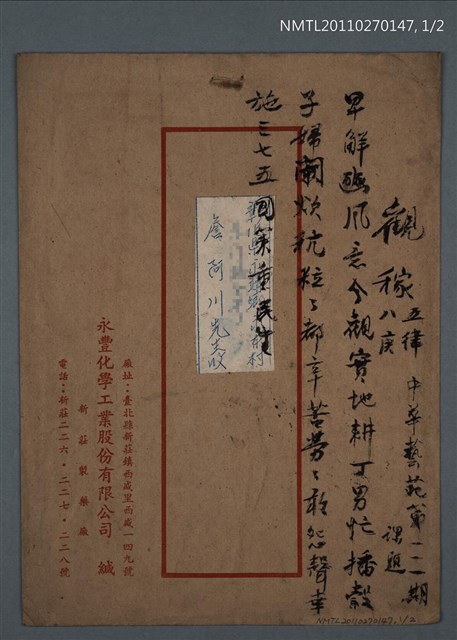 NMTL20110270147, 1/2
觀稼 八庚 五律 中華藝苑第一一期
課題
早解豳風意今觀實地耕丁男忙播穀
子婦闌炊秔粒々都辛苦勞々敢怨聲幸
施三七五國策重民生
詹阿川先生收
廠址：臺北縣新莊鎮西盛里西盛一四九號
永豐化學工業股份有限公司 緘
新莊製藥廠
電話：新莊二二六·二二七·二二八號
NMTL20110270147, 1/2